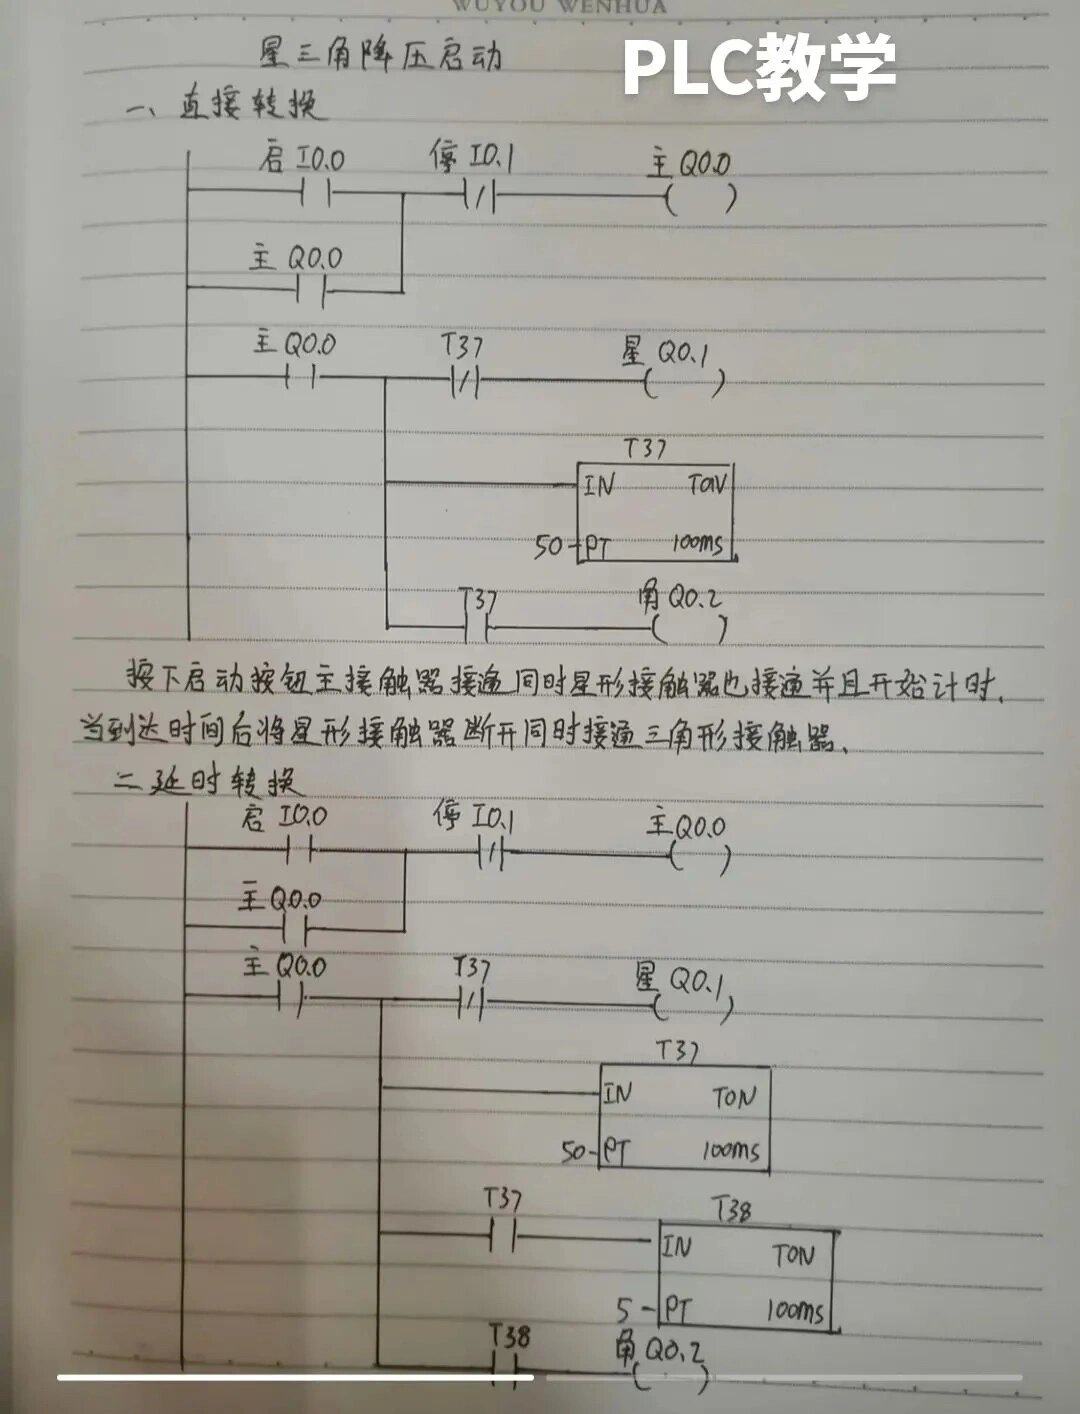 WUYOU WENHUA
PLC教学
星三角降压启动
一、直接转换
启 I0.0 停 I0.1 主 Q0.0
主 Q0.0
主 Q0.0 T37 星 Q0.1
T37
IN TON
50 PT 100ms
T37 角 Q0.2
按下启动按钮主接触器接通同时星形接触器也接通并且开始计时.
当到达时间后将星形接触器断开同时接通三角形接触器.
二 延时转换
启 I0.0 停 I0.1 主 Q0.0
主 Q0.0
主 Q0.0 T37 星 Q0.1
T37
IN TON
50 PT 100ms
T37 T38
IN TON
5 PT 100ms
T38 角 Q0.2